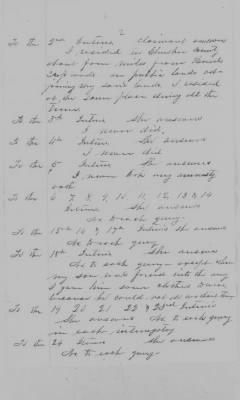 2
To the 2nd Interie claimant answers
I resided in Cherokee County
about four miles from
and on public lands ad-
joining my said lands. I resided
at the same place during all the
time.
To the 3rd Interie She answers
I never did,
To the 4th Interie She answers
I never did
To the 5 Interie She answers
I never took any amnesty
oath
To the 6 7, 8, 9, 10, 11, 12, 13 & 14
Interie She answers
No to each query.
To the 15th 16 & 17th Interie's She answers
No to each query
To the 18th Interie She answers
No to each query except when
my son was forced into the army
I gave him some clothes
because he could not do without them
To the 19 20 21 22 & 23rd Interie's
She answers No to each query
in each interrogatory
To the 24 Interie She answers
No to each query.